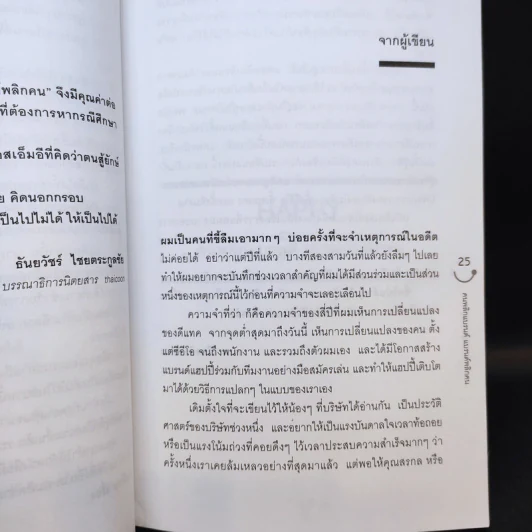 พลิกคน" จึงมีคุณค่าต่อ
ที่ต้องการหากรณีศึกษา
สเอ็มอีที่คิดว่าตนสู้ยักษ์
ย คิดนอกกรอบ
เป็นไปไม่ได้ ให้เป็นไปได้
ธันยวัชร์ ไชยตระกูลชัย
บรรณาธิการนิตยสาร thecom
จากผู้เขียน
ผมเป็นคนที่ขี้ลืมเอามากๆ บ่อยครั้งที่จะจำเหตุการณ์ในอดีต
ไม่ค่อยได้ อย่าว่าแต่ปีที่แล้ว บางทีสองสามวันที่แล้วยังลืมๆ ไปเลย
ทำให้ผมอยากจะบันทึกช่วงเวลาสำคัญที่ผมได้มีส่วนร่วมและเป็นส่วน
หนึ่งของเหตุการณ์นี้ไว้ก่อนที่ความจำจะเลอะเลือนไป
ความจำที่ว่า ก็คือความจำของสี่ปีที่ผมเห็นการเปลี่ยนแปลง
ของดีแทค จากจุดต่ำสุดมาถึงวันนี้ เห็นการเปลี่ยนแปลงของคน ตั้ง
แต่ซีอีโอ จนถึงพนักงาน และรวมถึงตัวผมเอง และได้มีโอกาสสร้าง
แบรนด์แฮปปี้ร่วมกับทีมงานอย่างมือสมัครเล่น และทำให้แฮปปี้เติบโต
มาได้ด้วยวิธีการแปลกๆ ในแบบของเราเอง
เดิมตั้งใจที่จะเขียนไว้ให้น้องๆ ที่บริษัทได้อ่านกัน เป็นประวัติ
ศาสตร์ของบริษัทช่วงหนึ่ง และอยากให้เป็นแรงบันดาลใจเวลาท้อถอย
หรือเป็นแรงโน้มถ่วงที่คอยดึงๆ ไว้เวลาประสบความสำเร็จมากๆ ว่า
ครั้งหนึ่งเราเคยล้มเหลวอย่างที่สุดมาแล้ว แต่พอให้คุณสรกล หรือ
25
คนพลิกแบรนด์ แบรนด์พลิกคน